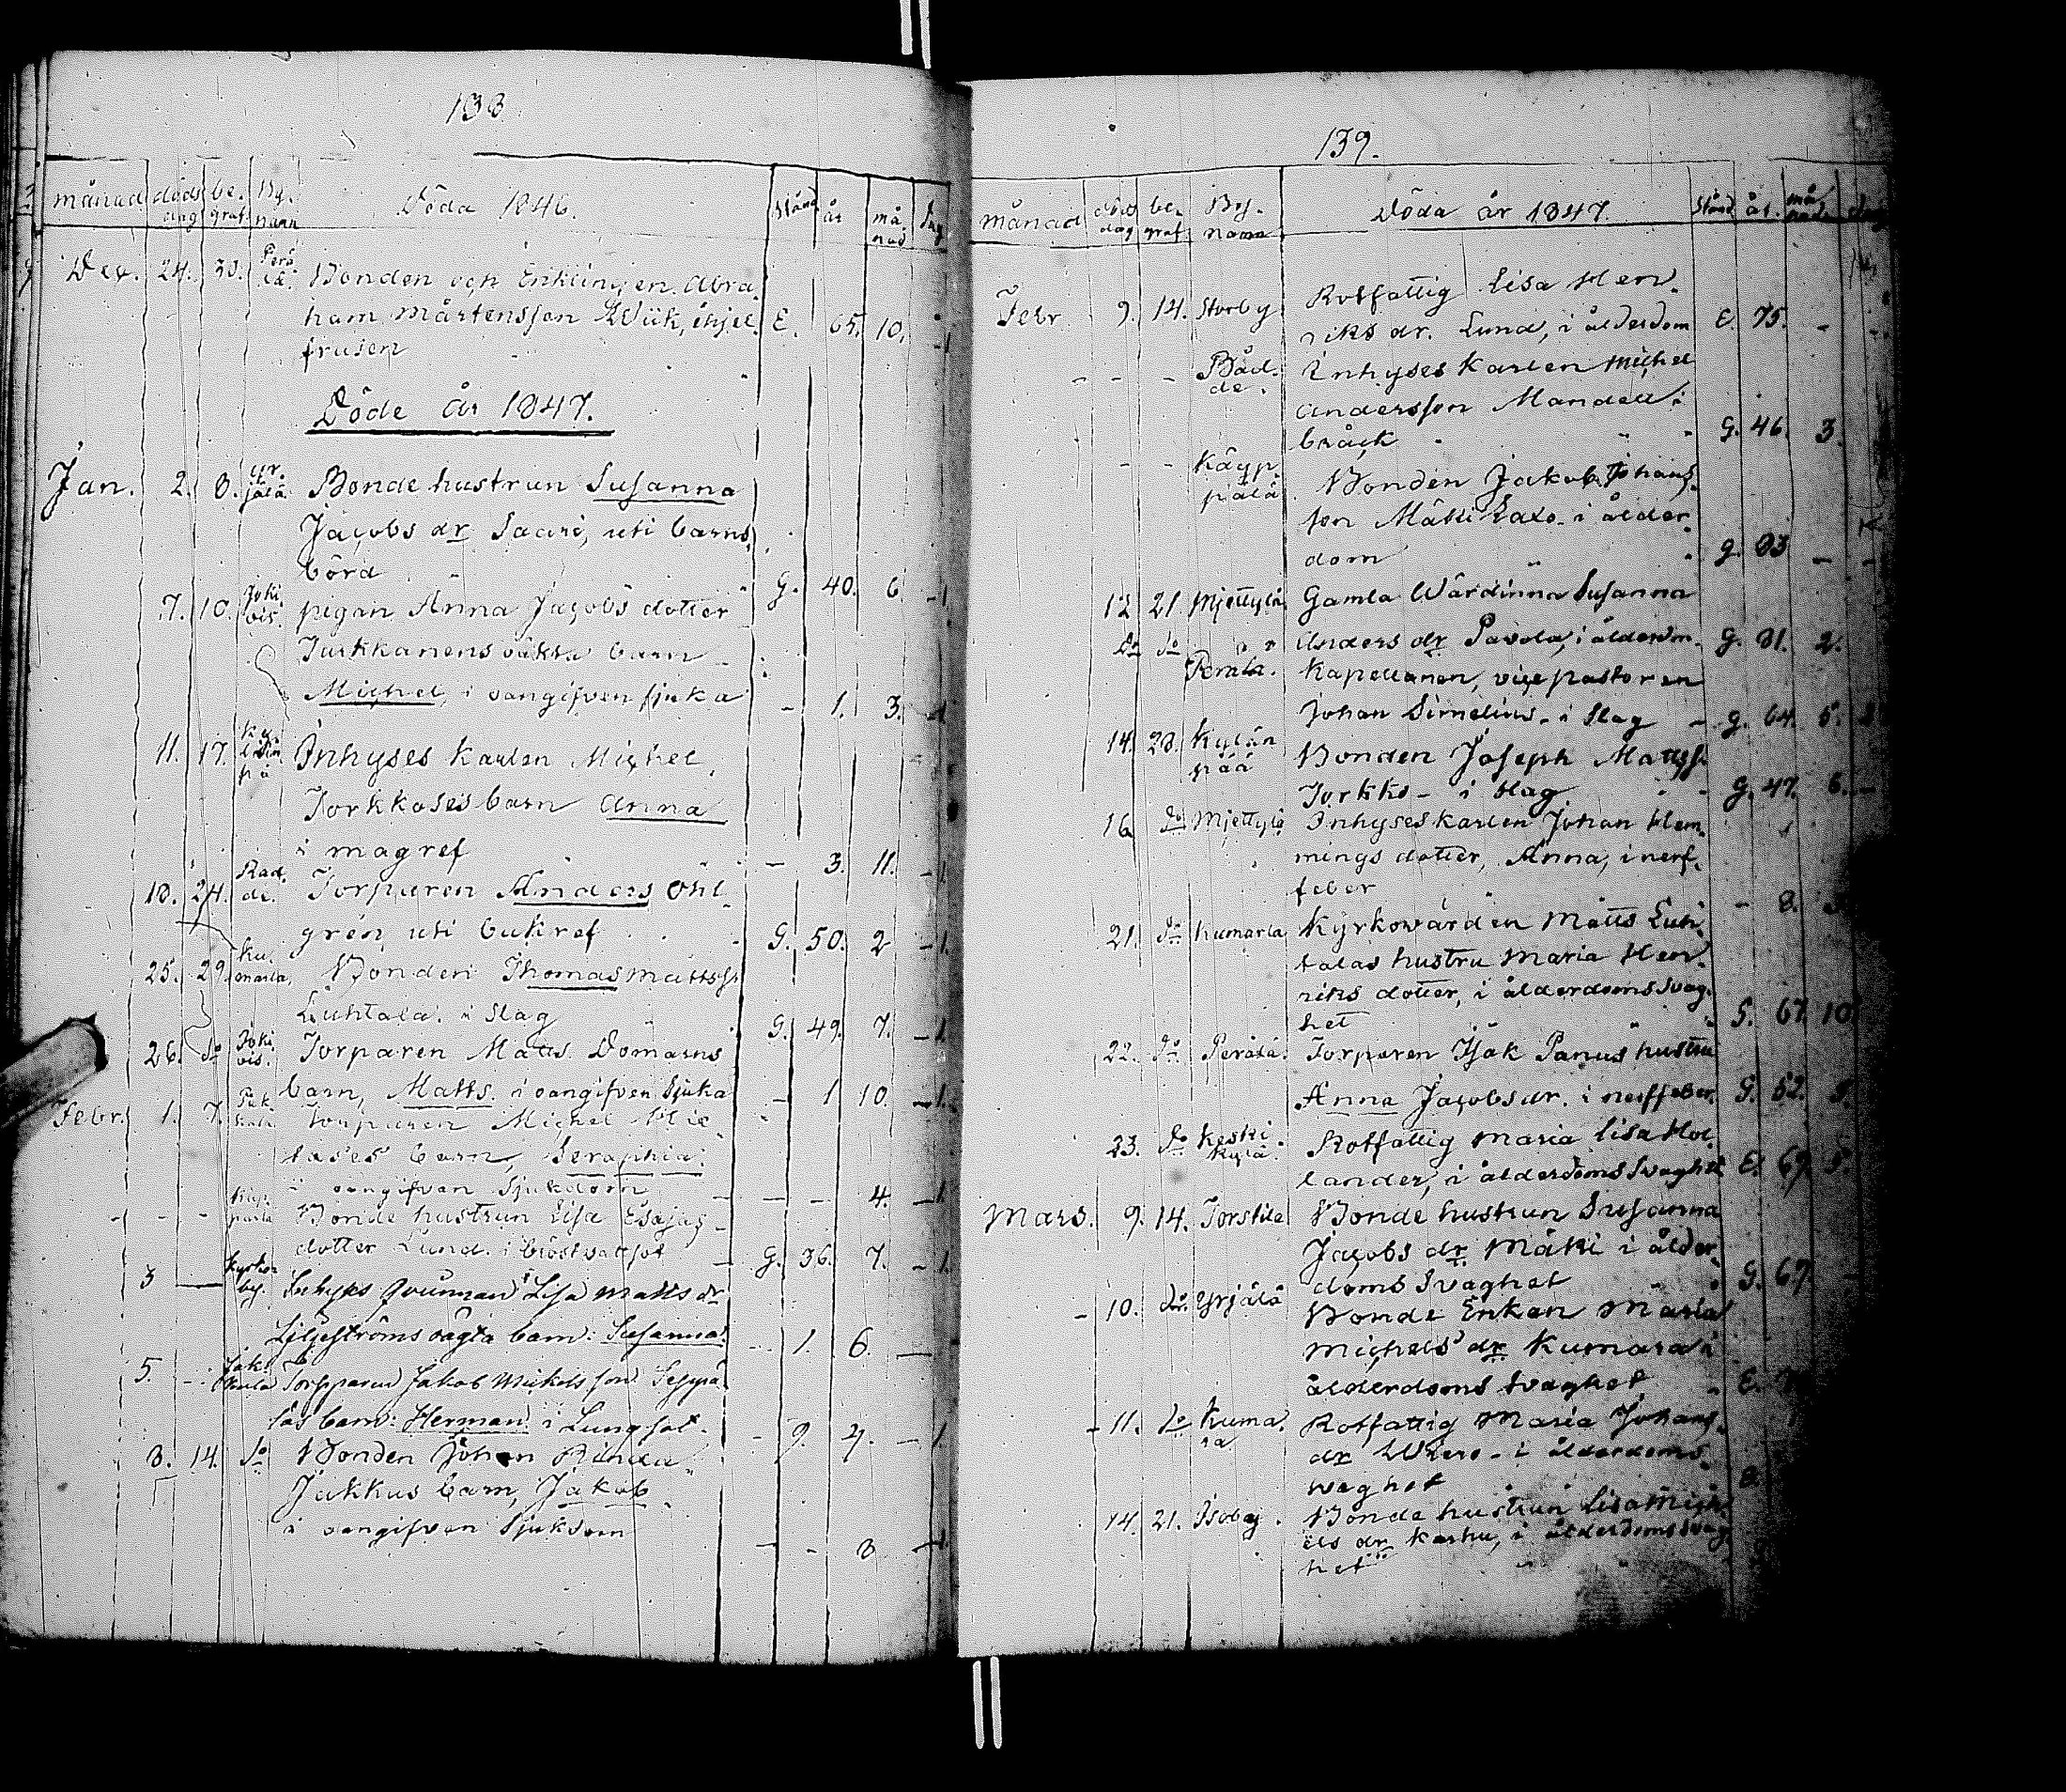 138.
månad döds dag be. graf. By. namn Döda 1846. Stånd år må nad dag
Dec. 24. 30. Perä lä. Bonden och Enklingen Abra
ham Mårtensson Wiik, ihjel E. 65. 10. -
frusen
Döde år 1847.
Jan. 2. 8. Yr jälä Bonde hustrun Susanna
Jacobs dr Saari, uti barns
börd G. 40. 6. - 1.
7. 10. Joki bis. pigan Anna Jacobs dotter
Jurkkanens oäkta barn
Michel, i oangifven sjuka - 1. 3.
11. 17. Inhyses Karlen Michel
Torkkoses barn Anna
i magref - 3. 11. - 1.
18. 24. Rad. de. Torparen Anders Öhl
grén, uti bukref G. 50. 2 - 1.
25. 29. Ku. marla. Bonden Thomas Mattss.
Luhtala. i Slag G. 49. 7. - 1.
26. do Joki bis. Torparen Matts Domarns
barn, Matts. i oangifven Sjuka - 1 10. - 1.
Febr. 1. 7. Torparen Michel
barn, Seraphia.
i oangifven Sjukdom - - - 4. - 1.
- - - Bonde hustrun Lisa Esajas
dotter Lund. i bröstvattsot - G. 36. 7. - 1.
3 — Kyrko by. Inhyses qvinnan Lisa Matts dr
Liljeströms oägta barn: Susanna - 1. 6. —
5. - Torpparen Jakob Mickels son Seppä
läs barn: Herman i Lungsot. - 9. - 1.
8. 14. do Bonden Johan
Jakkus barn, Jakob
i oangifven Sjukdom - - 8 - 1.
139.
månad döds dag be. graf By. namn Döda år 1847. Stånd år. må nader dag
Febr 9. 14. Storby Rotfattig Lisa Hen.
riks dr. Lund, i ålderdom E. 75. -
- - - Båd. de. Inhyses Karlen Michel
Andersson Mandell i
bråck G. 46. 3.
- - Käyp. pälä Bonden Jakob Johans
son Mäki Salo. i ålder
dom g. 83 - -
12 21. Mjettylä Gamla Värdinna Susanna
Anders dr Pavola, i ålderdm. G. 81. 2.
do do Perälä. Kapellanen, vice pastoren
Johan Simelius - i Slag - g. 64. 5.
14. 28. Kylän pää Bonden Joseph Mattss.
Torkko - i slag G. 47. 6. -
16. do Mjettylä Inhyses karlen Johan Hem
mings dotter, Anna, i nerf
feber - 8.
21. do Kumarla Kyrkowärden Matts Luh
talas hustru Maria Hen
riks dotter, i ålderdoms Svag.
het G. 67. 10.
22. do Perälä. Torparen Isak Panus hustru
Anna Jacobs dr. i nerffeber. G. 52.
23. do Keski kylä. Rotfattig Maria Lisa Hol
lander, i ålderdoms Svaghet E. 69.
Mars. 9. 14. Torstila Bonde hustrun Susanna
Jacobs dr Mäki i ålder
doms Svaghet G. 67.
- 10. do. Yrjälä Bonde Enkan Maria
Michels dr Kumara i
ålderdoms svaghet E.
- 11. do Kuma ra Rotfattig Maria Johans
dr - i ålderdoms
waghet
14. 21. Isoby. Bonde hustrun Lisa Mich
els dr Karhu, i ålderdoms svag
het